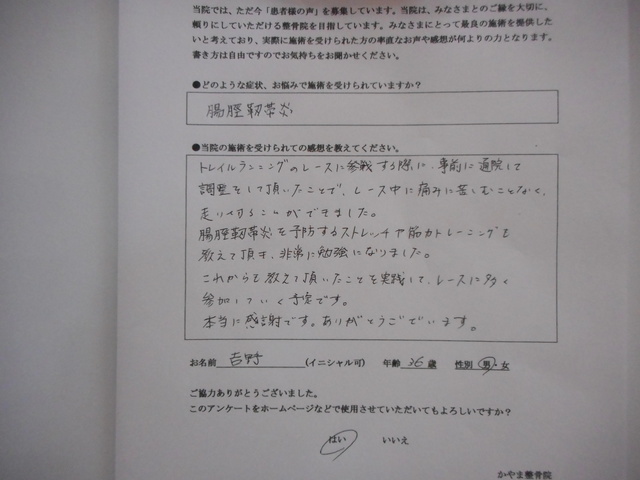 当院では、ただ今「患者様の声」を募集しています。当院は、みなさまとのご縁を大切に、
頼りにしていただける整骨院を目指しています。みなさまにとって最良の施術を提供した
いと考えており、実際に施術を受けられた方の率直なお声や感想が何よりの力となります。
書き方は自由ですのでお気持ちをお聞かせください。
●どのような症状、お悩みで施術を受けられていますか？
腸脛靭帯炎
●当院の施術を受けられての感想を教えてください。
トレイルランニングのレースに参戦する際に、事前に通院して
調整をして頂いたことで、レース中に痛みに苦しむことなく、
走り切ることができました。
腸脛靭帯炎を予防するストレッチや筋力トレーニングも
教えて頂き、非常に勉強になりました。
これからも教えて頂いたことを実践して、レースに多く
参加していく予定です。
本当に感謝です。ありがとうございます。
お名前 吉野 (イニシャル可) 年齢 36 歳 性別 男・女
ご協力ありがとうございました。
このアンケートをホームページなどで使用させていただいてもよろしいですか？
はい いいえ
かやま整骨院